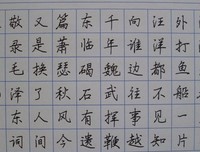 外打鱼船一片
汪洋都不见知
向谁边往事越
千年魏武挥鞭
东临碣石有遗
篇萧瑟秋风今
又是换了人间
敬录毛泽东词